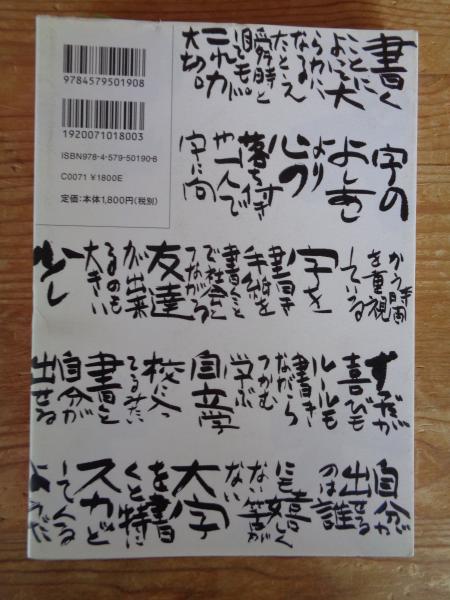 9784579501908
1920071018003
ISBN978-4-579-50190-8
C0071 ¥1800E
定価:本体1,800円(税別)
書く
ことに
よって大
らかに
なる。
たとえ
瞬時と
いえども。
これが
大切。
字の
よしあし
より
心の
落ち付き
や一人で
字に向
かう時間
を重視
している
字を
書き
手紙を
書くこと
で社会と
つながる
友達
が出来
るのも
大きい
少し
ずつだが
喜びも
ルールも
書き
ながら
つかむ
学ぶ
自立学
校に入
てるみたい
書くと
自分が
出せる
自分が
出せる
のは誰
にも嬉しく
ない筈が
ない
大字
を書
くと特に
スカッと
してくる
ようだ